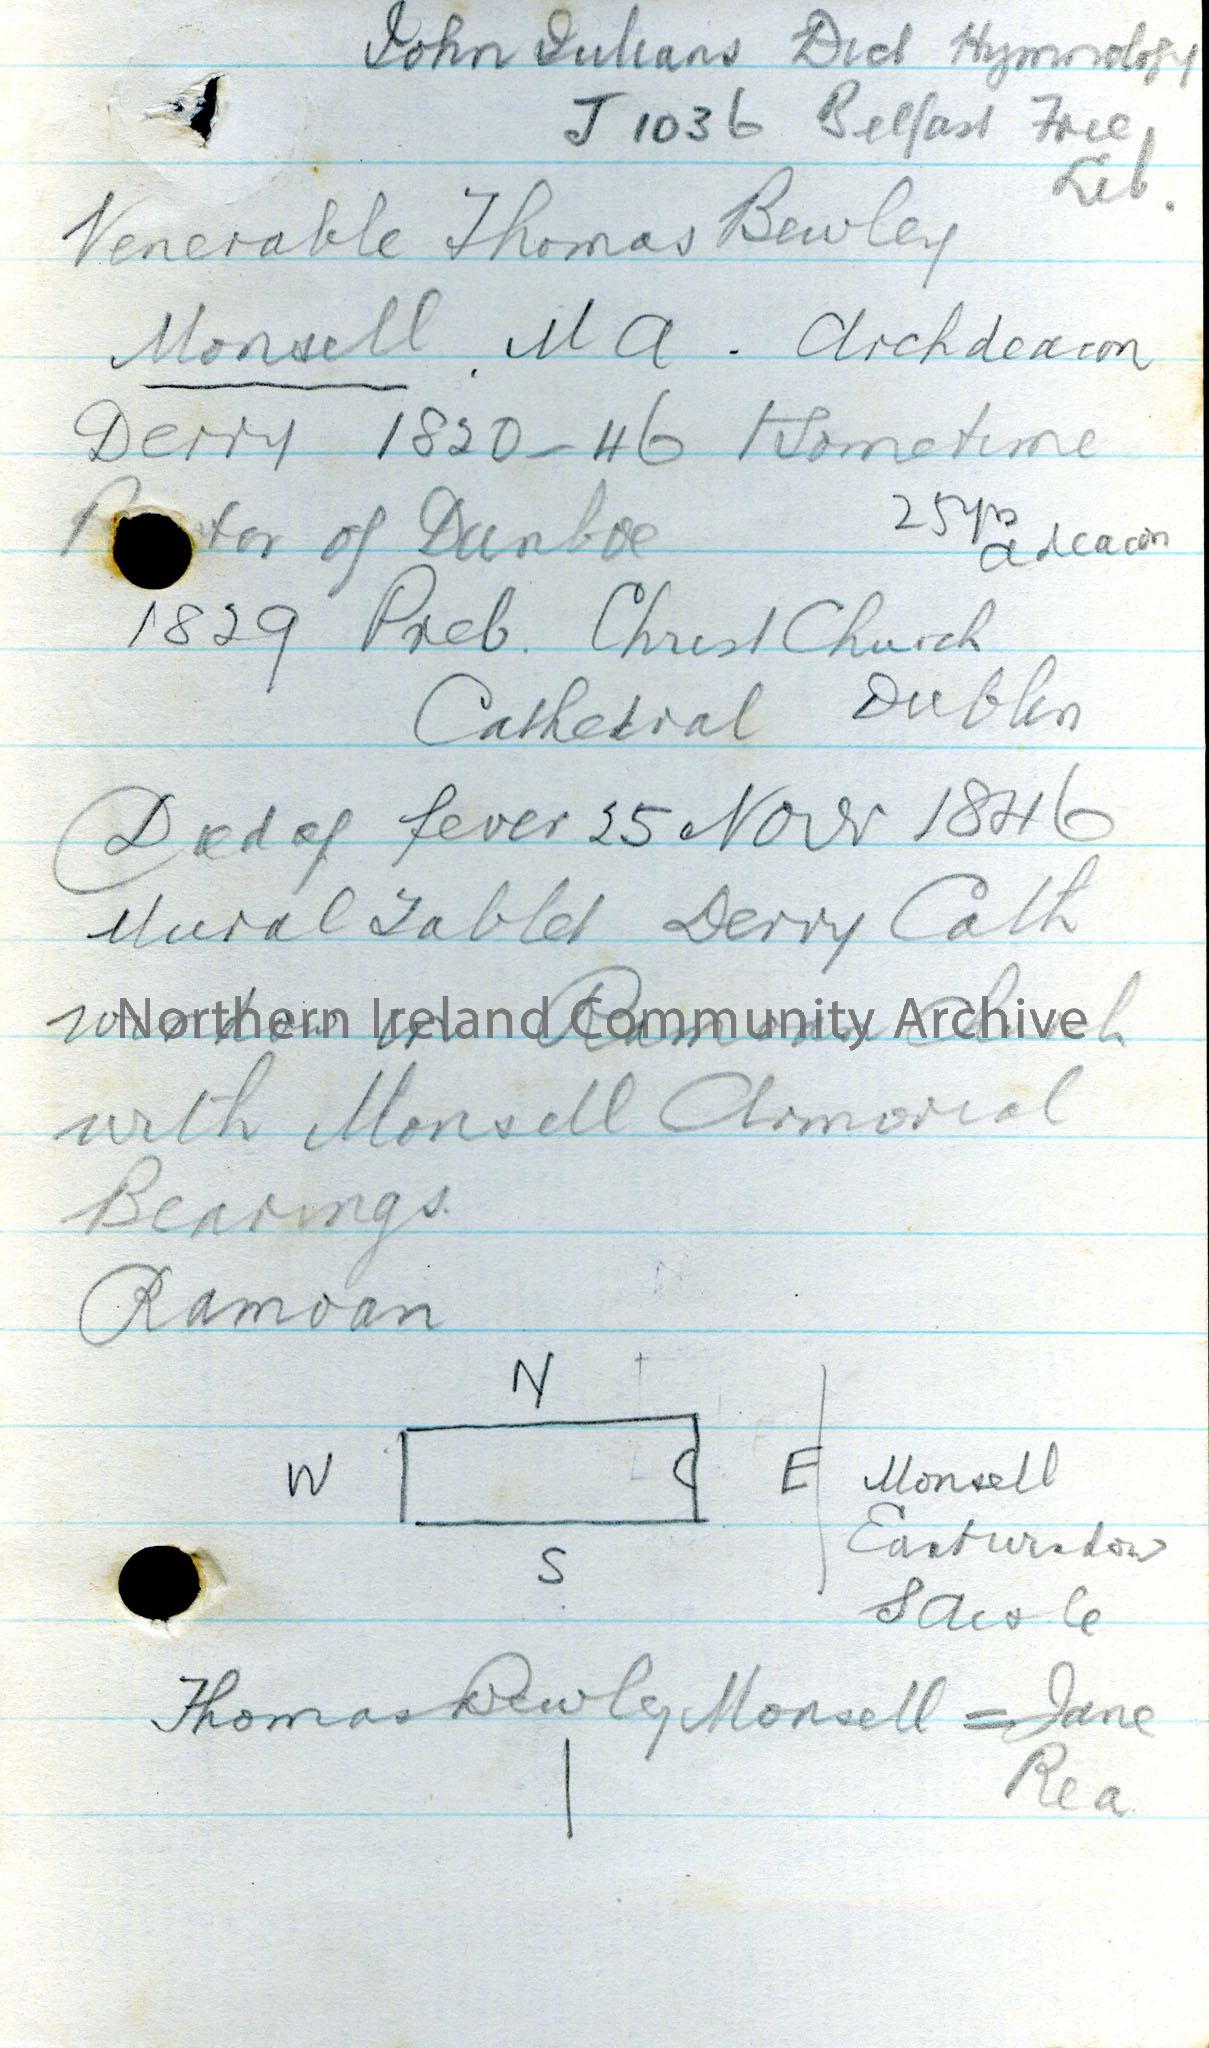 John Julians Dict Hymnology
J 1036 Belfast Free
Lib.
Venerable Thomas Bewley
Monsell. M A. Archdeacon
Derry 1820-46 & Sometime
R tor of Dunboe
25 yrs
adeacon
1829 Preb. Christ Church
Cathedral Dublin
Died of fever 25 Novr 1846
Mural Tablet Derry Cath
window in Ramoan Church
Northern Ireland Community Archive
with Monsell Armorial
Bearings.
Ramoan
N
W
E
S
Monsell
East window
S Aisle
Thomas Bewley Monsell = Jane
Rea